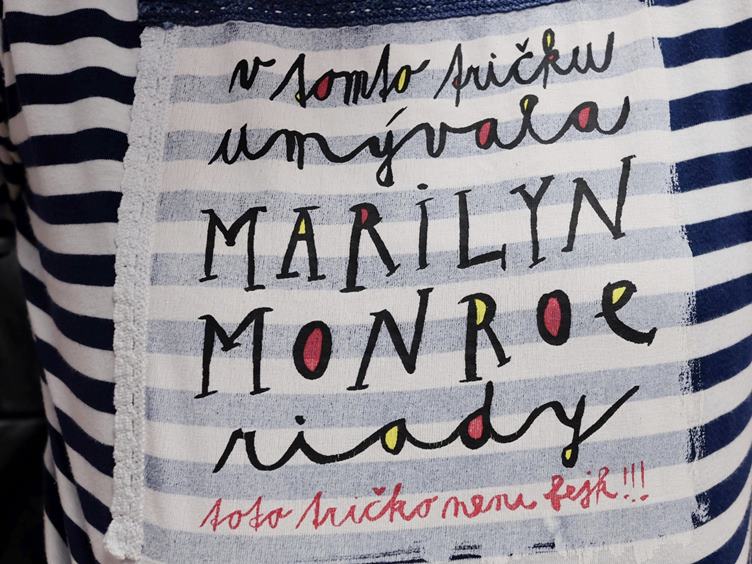 v tomto tričku
umývala
MARILYN
MONROe
riady
toto tričko neni fejk!!!